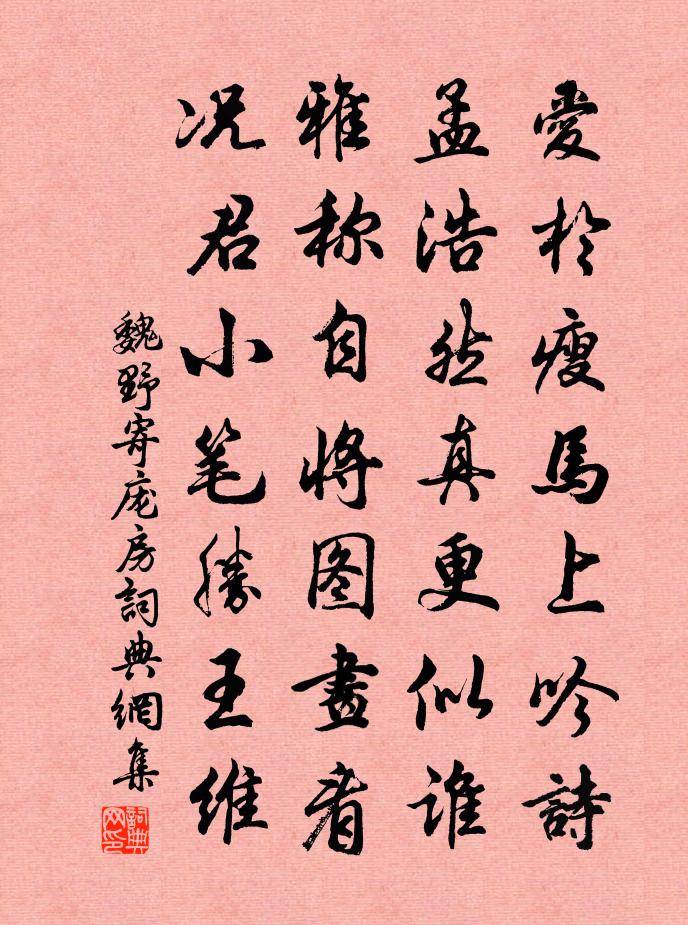 愛於瘦馬上吟詩
孟浩然真更似谁
雅称自将图畫看
况君小笔勝王维
魏野寄庞房詞典網集
詞典网印